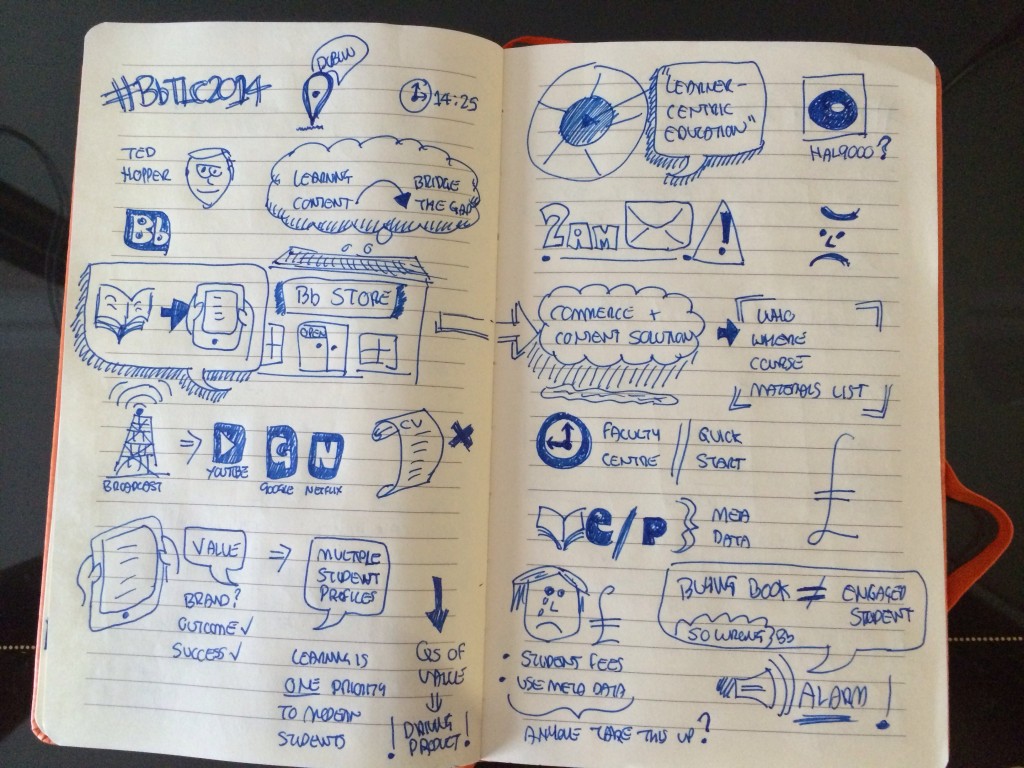 #BbTLC2014
DUBLIN
14:25
TED
HOPPER
LEARNING
CONTENT
BRIDGE
THE GAP
Bb
Bb STORE
OPEN
BROADCAST
YOUTUBE
G
GOOGLE
N
NETFLIX
CV
VALUE
BRAND?
OUTCOME ✓
SUCCESS ✓
MULTIPLE
STUDENT
PROFILES
LEARNING IS
ONE PRIORITY
TO MODERN
STUDENTS
QS OF
VALUE
! DRIVING
PRODUCT!
"LEARNER-
CENTRIC
EDUCATION"
HAL9000?
2AM
!
COMMERCE +
CONTENT SOLUTION
WHO
WHERE
COURSE
MATERIALS LIST
FACULTY
CENTRE
QUICK
START
£
e/p
META
DATA
£
• STUDENT FEES
• USE META DATA
ANYONE TAKE THIS UP?
BUYING BOOK ≠ ENGAGED
STUDENT
SO WRONG} Bb
ALARM!